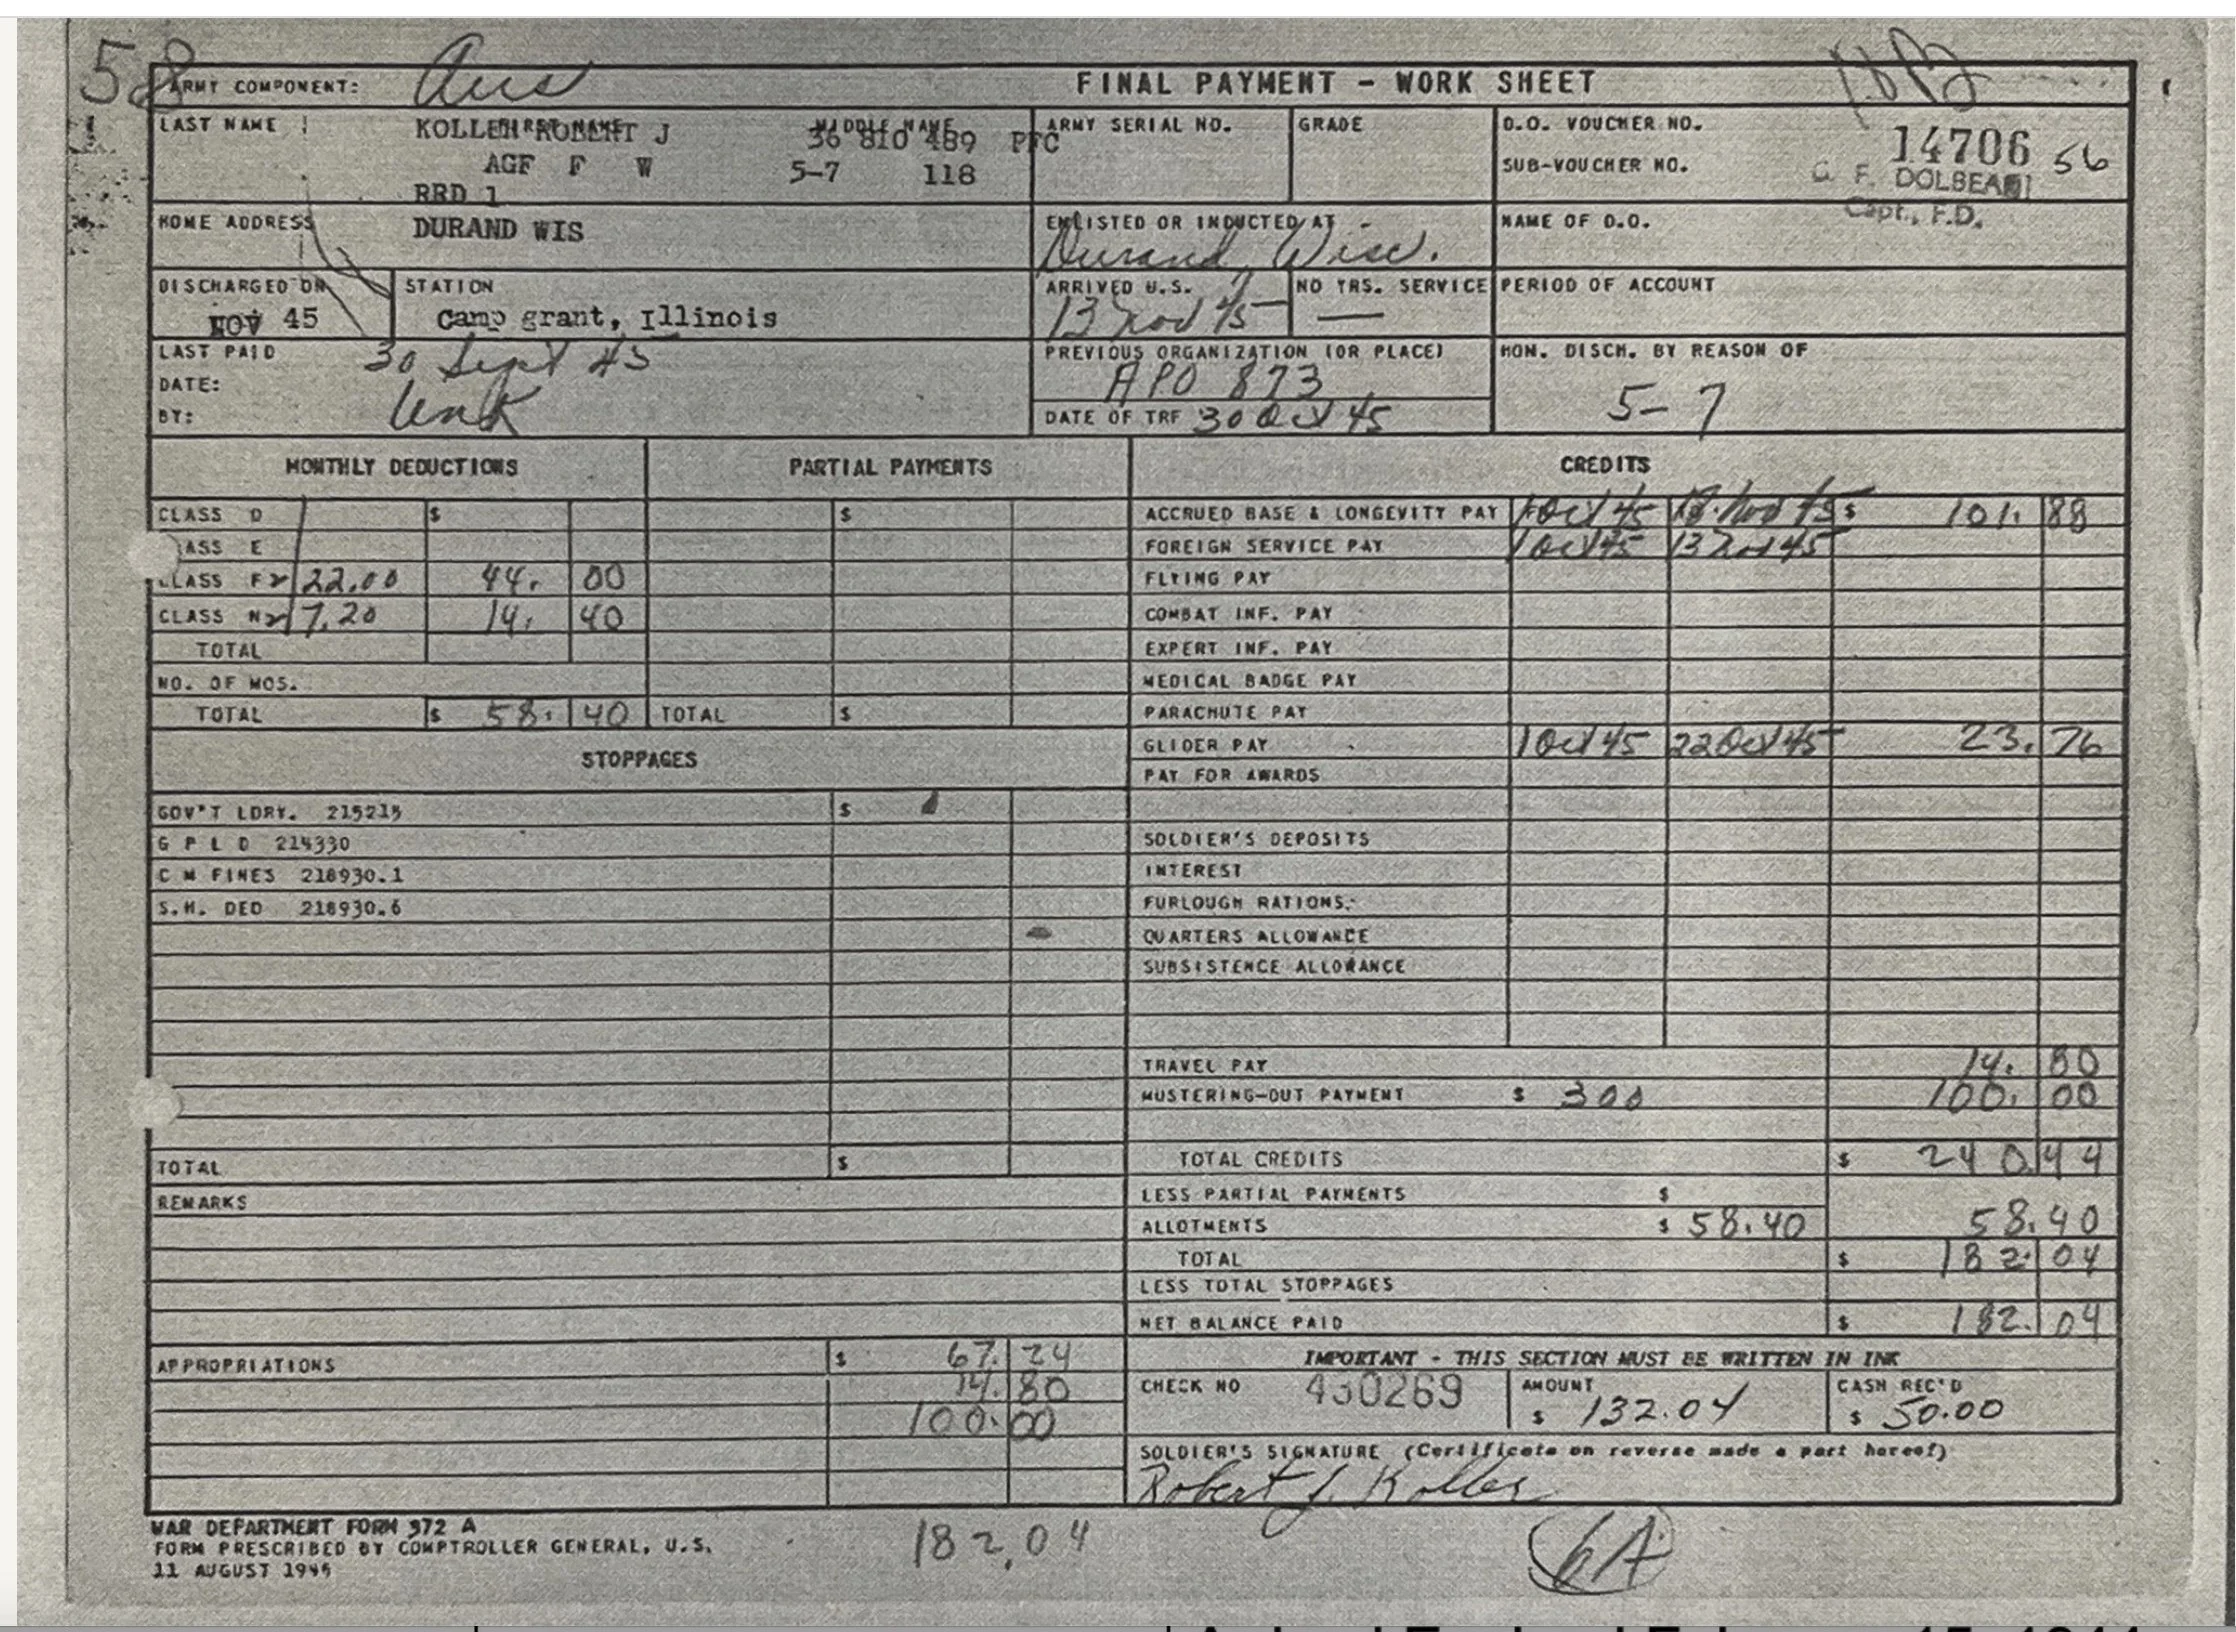 58
ARMY COMPONENT: Aus
FINAL PAYMENT - WORK SHEET
LAST NAME FIRST NAME MIDDLE NAME
KOLLER ROBERT J 36 810 489 PFC
AGF F W 5-7 118
RRD 1
ARMY SERIAL NO.
GRADE
D.O. VOUCHER NO. 14706 56
SUB-VOUCHER NO.
G. F. DOLBEAR
Capt., F.D.
HOME ADDRESS DURAND WIS
ENLISTED OR INDUCTED AT
Durand, Wisc.
NAME OF D.O.
DISCHARGED ON
NOV 45
STATION
Camp grant, Illinois
ARRIVED U.S.
13 Nov 45
NO YRS. SERVICE
—
PERIOD OF ACCOUNT
LAST PAID
DATE: 30 Sept 45
BY: Unk
PREVIOUS ORGANIZATION (OR PLACE)
APO 873
DATE OF TRF 30 Oct 45
HON. DISCH. BY REASON OF
5-7
MONTHLY DEDUCTIONS
PARTIAL PAYMENTS
CREDITS
CLASS D $ $
ASS E
CLASS F 22.00 44. 00
CLASS N 7.20 14. 40
TOTAL
NO. OF MOS.
TOTAL $ 58. 40 TOTAL $
ACCRUED BASE & LONGEVITY PAY 1 Oct 45 Nov 45 $ 101. 88
FOREIGN SERVICE PAY 1 Oct 45 13 Nov 45
FLYING PAY
COMBAT INF. PAY
EXPERT INF. PAY
MEDICAL BADGE PAY
PARACHUTE PAY
GLIDER PAY 1 Oct 45 22 Oct 45 23. 76
PAY FOR AWARDS
STOPPAGES
GOV'T LDRY. 215215 $
G P L D 214330
C M FINES 218930.1
S.H. DED 218930.6
SOLDIER'S DEPOSITS
INTEREST
FURLOUGH RATIONS.
QUARTERS ALLOWANCE
SUBSISTENCE ALLOWANCE
TRAVEL PAY 14. 80
MUSTERING-OUT PAYMENT $ 300 100. 00
TOTAL $
TOTAL CREDITS $ 240.44
REMARKS
LESS PARTIAL PAYMENTS $
ALLOTMENTS $ 58.40 58.40
TOTAL $ 182. 04
LESS TOTAL STOPPAGES
NET BALANCE PAID $ 182. 04
APPROPRIATIONS $ 67. 24
14. 80
100. 00
IMPORTANT - THIS SECTION MUST BE WRITTEN IN INK
CHECK NO 430269
AMOUNT
$ 132.04
CASH REC'D
$ 50.00
SOLDIER'S SIGNATURE (Certificate on reverse made a part hereof)
Robert J. Koller
WAR DEPARTMENT FORM 372 A
FORM PRESCRIBED BY COMPTROLLER GENERAL, U.S.
11 AUGUST 1945
182.04
6A